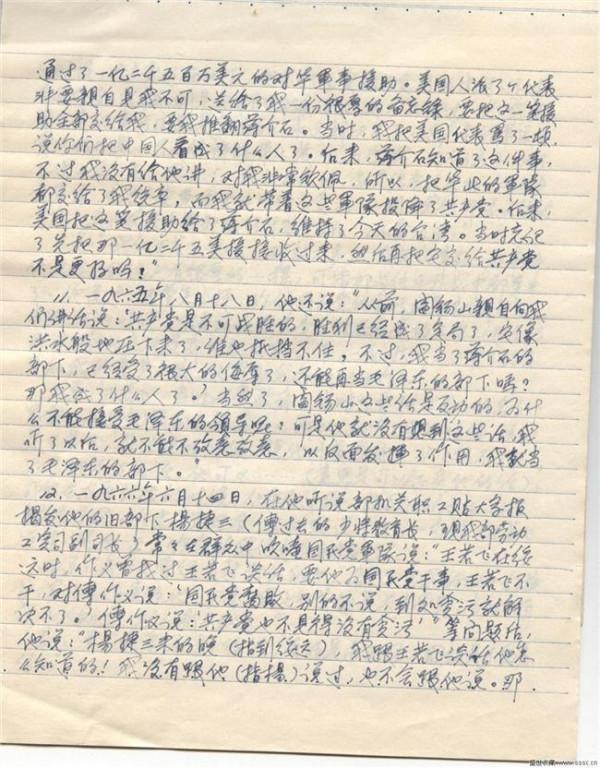 通过了一亿二千五百万美元的对华军事援助。美国人派了个代表
非要亲自见我不可,送给了我一份很厚的备忘录,要把这一笔援
助全部交给我,要我推翻蒋介石。当时,我把美国代表骂了一顿,
说你们把中国人看成了什么人了。后来,蒋介石知道了这件事,
不过我没有给他讲,对我非常钦佩,所以,把华北的军队
都交给了我统率,而我就带着这些军队投降了共产党。后来,
美国把这笔援助给了蒋介石,维持了今天的台湾。当时忘记
了先把那一亿二千五美援接收过来,然后再把它交给共产党
不是更好吗!”
11、一九六五年八月十八日,他还说:“从前,阎锡山亲自向我
们讲话说:‘共产党是不可战胜的,胜利已经成了定局了,它像
洪水般地压下来了,谁也抵挡不住。不过,我当了蒋介石的
部下,已经受了很大的侮辱了,还能再当毛泽东的部下吗?
那我成了什么人了。’当然了,阎锡山这些话是反动的,为什
么不能接受毛泽东的领导呢?可是他就没有想到这些话,我
听了以后,就不能不故意故意,以反面发挥了作用,我就当
了毛泽东的部下。”
12、一九六六年六月十四日,在他听说部机关职工贴大字报
揭发他的旧部下杨捷三(傅过去的少将教育长,现我部劳动
工资司副司长)常常在群众中吹嘘国民党军队说:“王若飞在绥
远时,作义曾找过王若飞谈话,要他为国民党干事,王若飞不
干,对傅作义说:‘国民党腐败,别的不说,到如贪污就解
决不了。’傅作义说:共产党也不见得没有贪污’”等问题后,
他说:“杨捷三来的晚(指到绥远),我跟王若飞谈话他怎
么知道的!我没有跟他(指杨)说过,也不会跟他说。那
盛世收藏www.sssc.cn